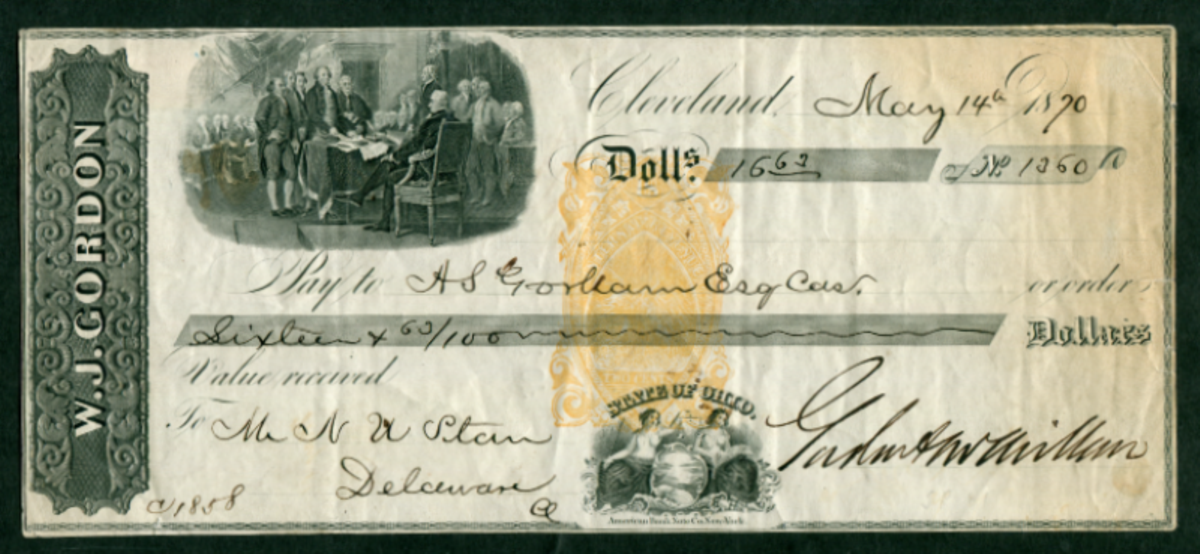 W.J. GORDON
Cleveland, May 14th 1870
Dolls. 16 63 No 1260
Pay to A S Gorham Esq Cas. or order
Sixteen & 63/100 Dollars
Value received
STATE OF OHIO.
To Mr N U Starr
Delaware
O
1858
American Bank Note Co. New York